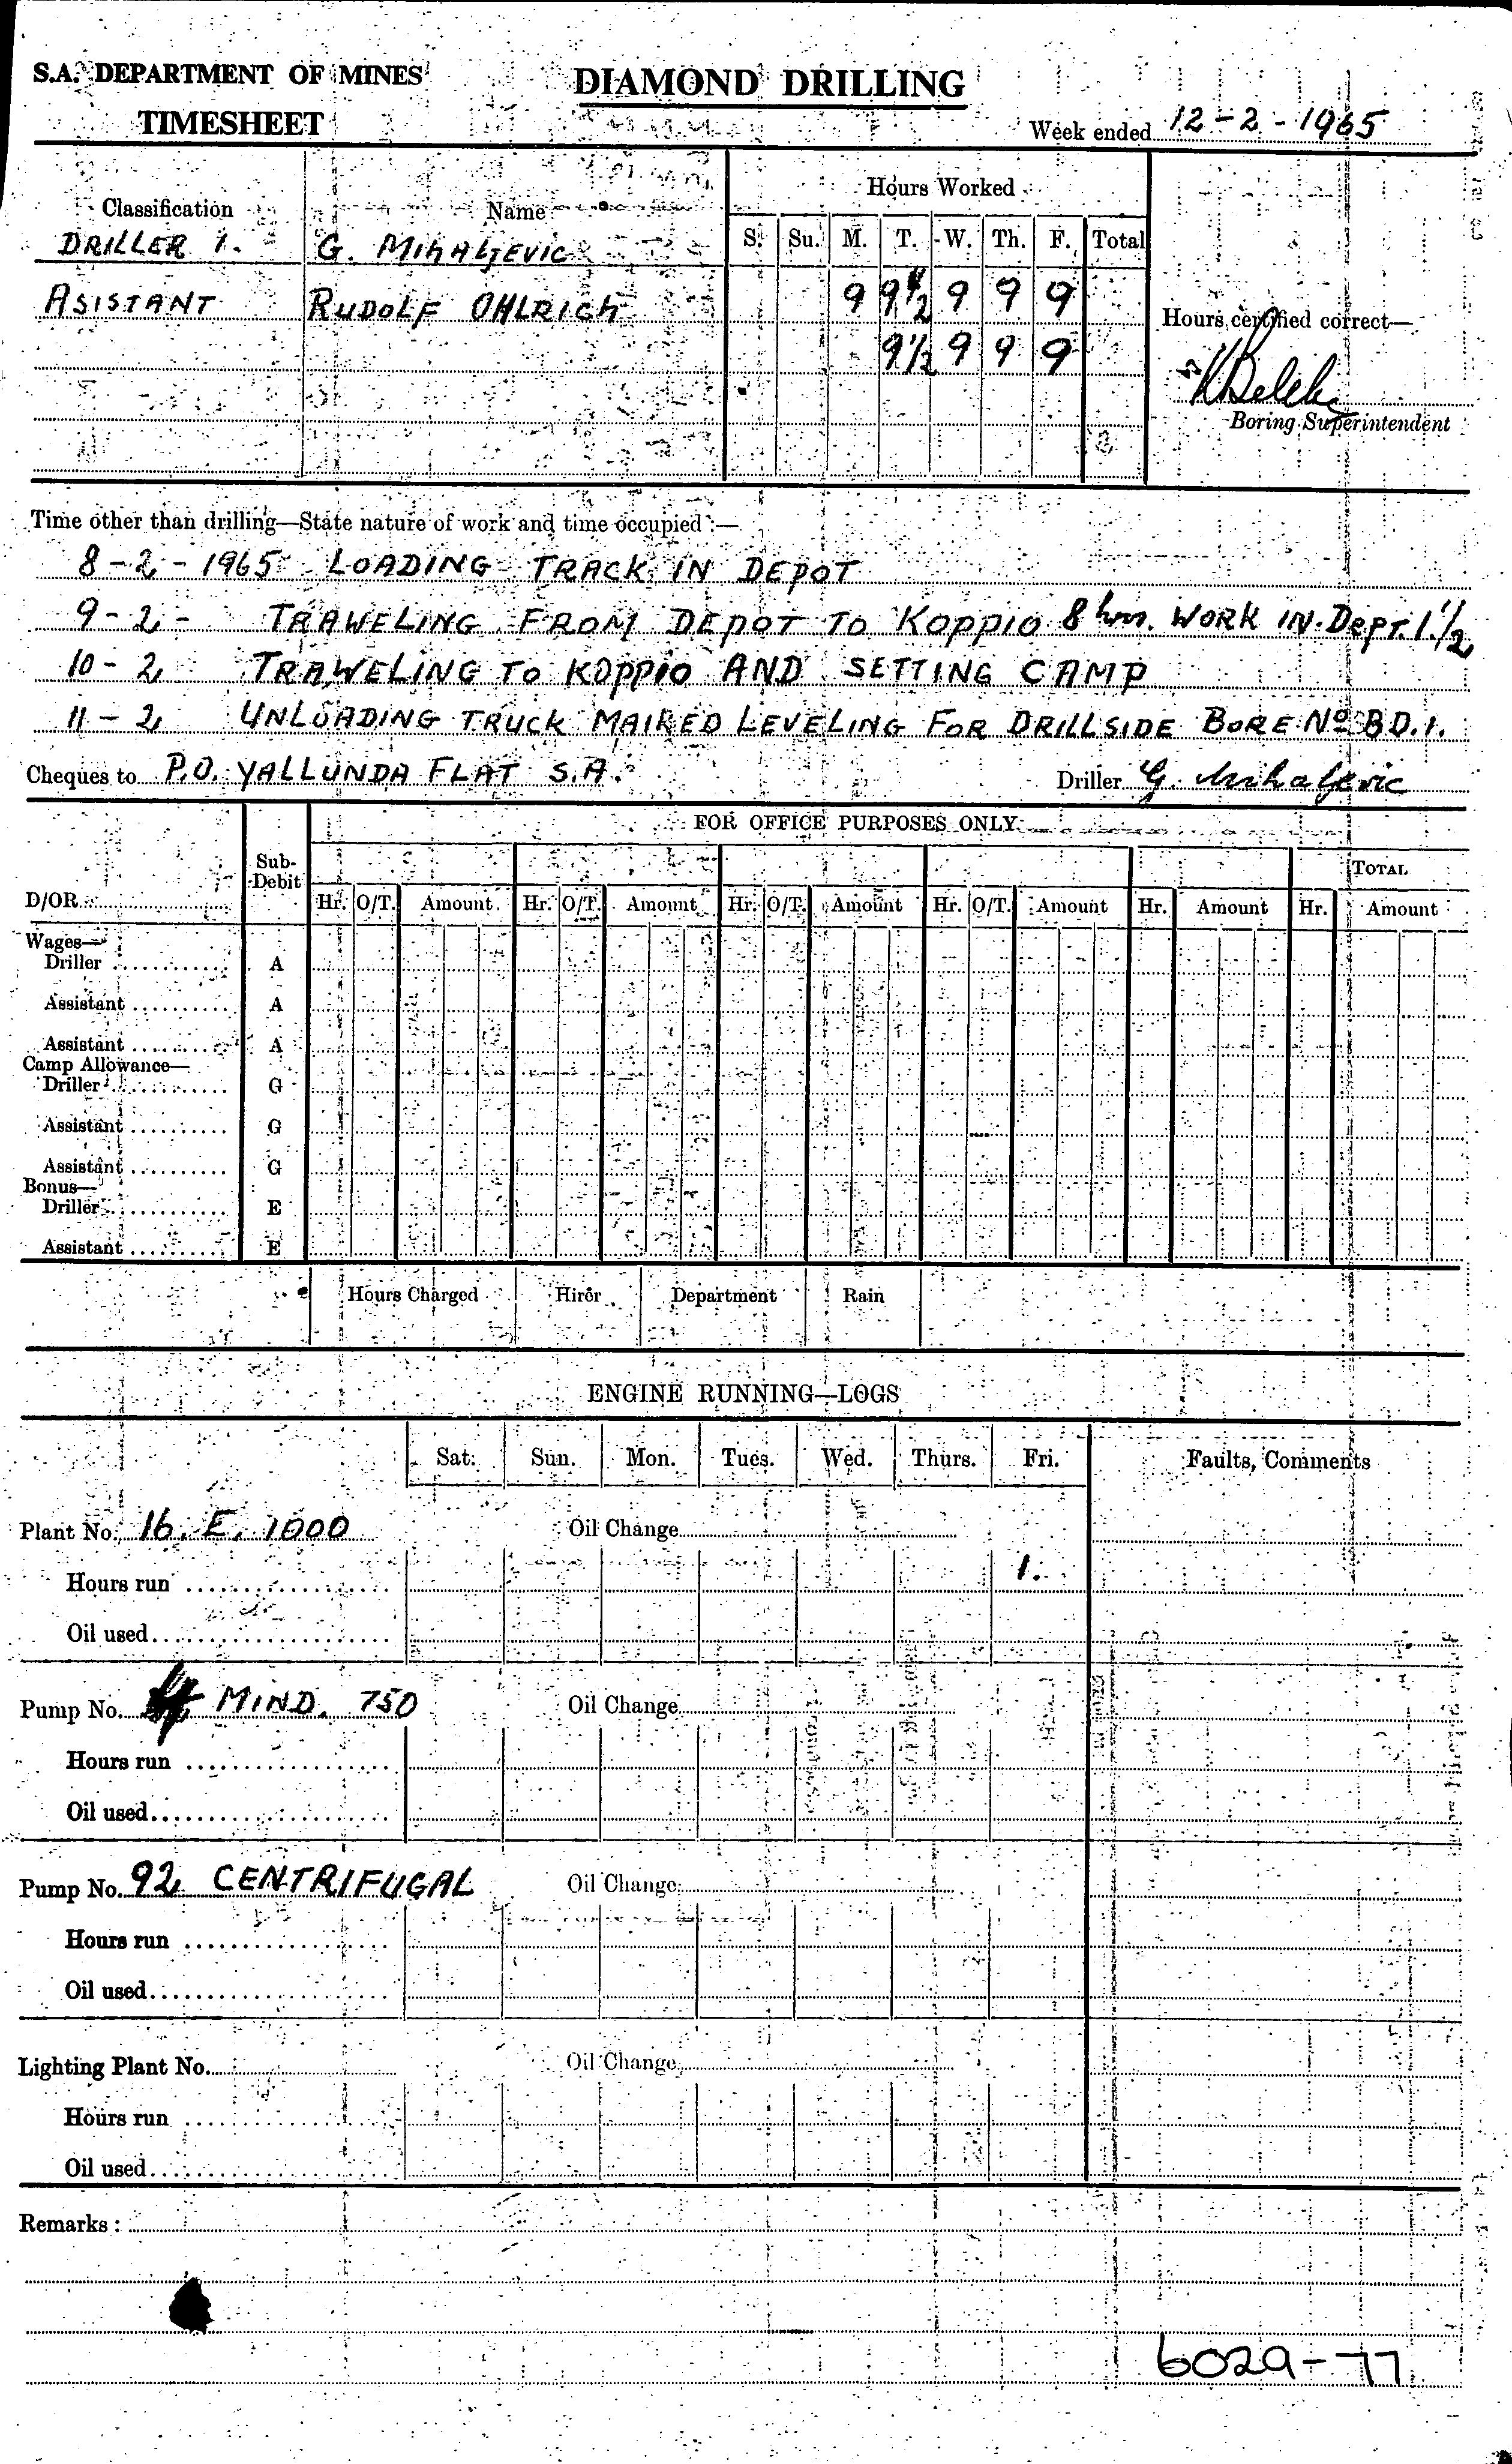 S.A. DEPARTMENT OF MINES
DIAMOND DRILLING
TIMESHEET
Week ended 12-2-1965
Hours Worked
Classification Name
S. Su. M. T. W. Th. F. Total
DRILLER 1. G. MIHALJEVIC
9 9 1/2 9 9 9
ASISTANT RUDOLF OHLRICH
9 1/2 9 9 9
Hours certified correct—
Boring Superintendent
Time other than drilling—State nature of work and time occupied :—
8-2-1965 LOADING TRACK IN DEPOT
9-2- TRAWELING FROM DEPOT TO KOPPIO 8 hrs. WORK IN. DEPT. 1 1/2
10-2 TRAWELING TO KOPPIO AND SETTING CAMP
11-2 UNLOADING TRUCK MAIKED LEVELING FOR DRILLSIDE BORE No BD.1.
Cheques to P.O. YALLUNDA FLAT S.A. Driller G. Mihaljevic
FOR OFFICE PURPOSES ONLY
Sub-Debit
TOTAL
D/OR
Hr. O/T. Amount Hr. O/T. Amount Hr. O/T. Amount Hr. O/T. Amount Hr. Amount Hr. Amount
Wages—
Driller A
Assistant A
Assistant A
Camp Allowance—
Driller G
Assistant G
Assistant G
Bonus—
Driller E
Assistant E
Hours Charged Hirer Department Rain
ENGINE RUNNING—LOGS
Sat. Sun. Mon. Tues. Wed. Thurs. Fri. Faults, Comments
Plant No. 16. E. 1000 Oil Change
Hours run 1.
Oil used
Pump No. MIND. 750 Oil Change
Hours run
Oil used
Pump No. 92 CENTRIFUGAL Oil Change
Hours run
Oil used
Lighting Plant No. Oil Change
Hours run
Oil used
Remarks :
6029-77